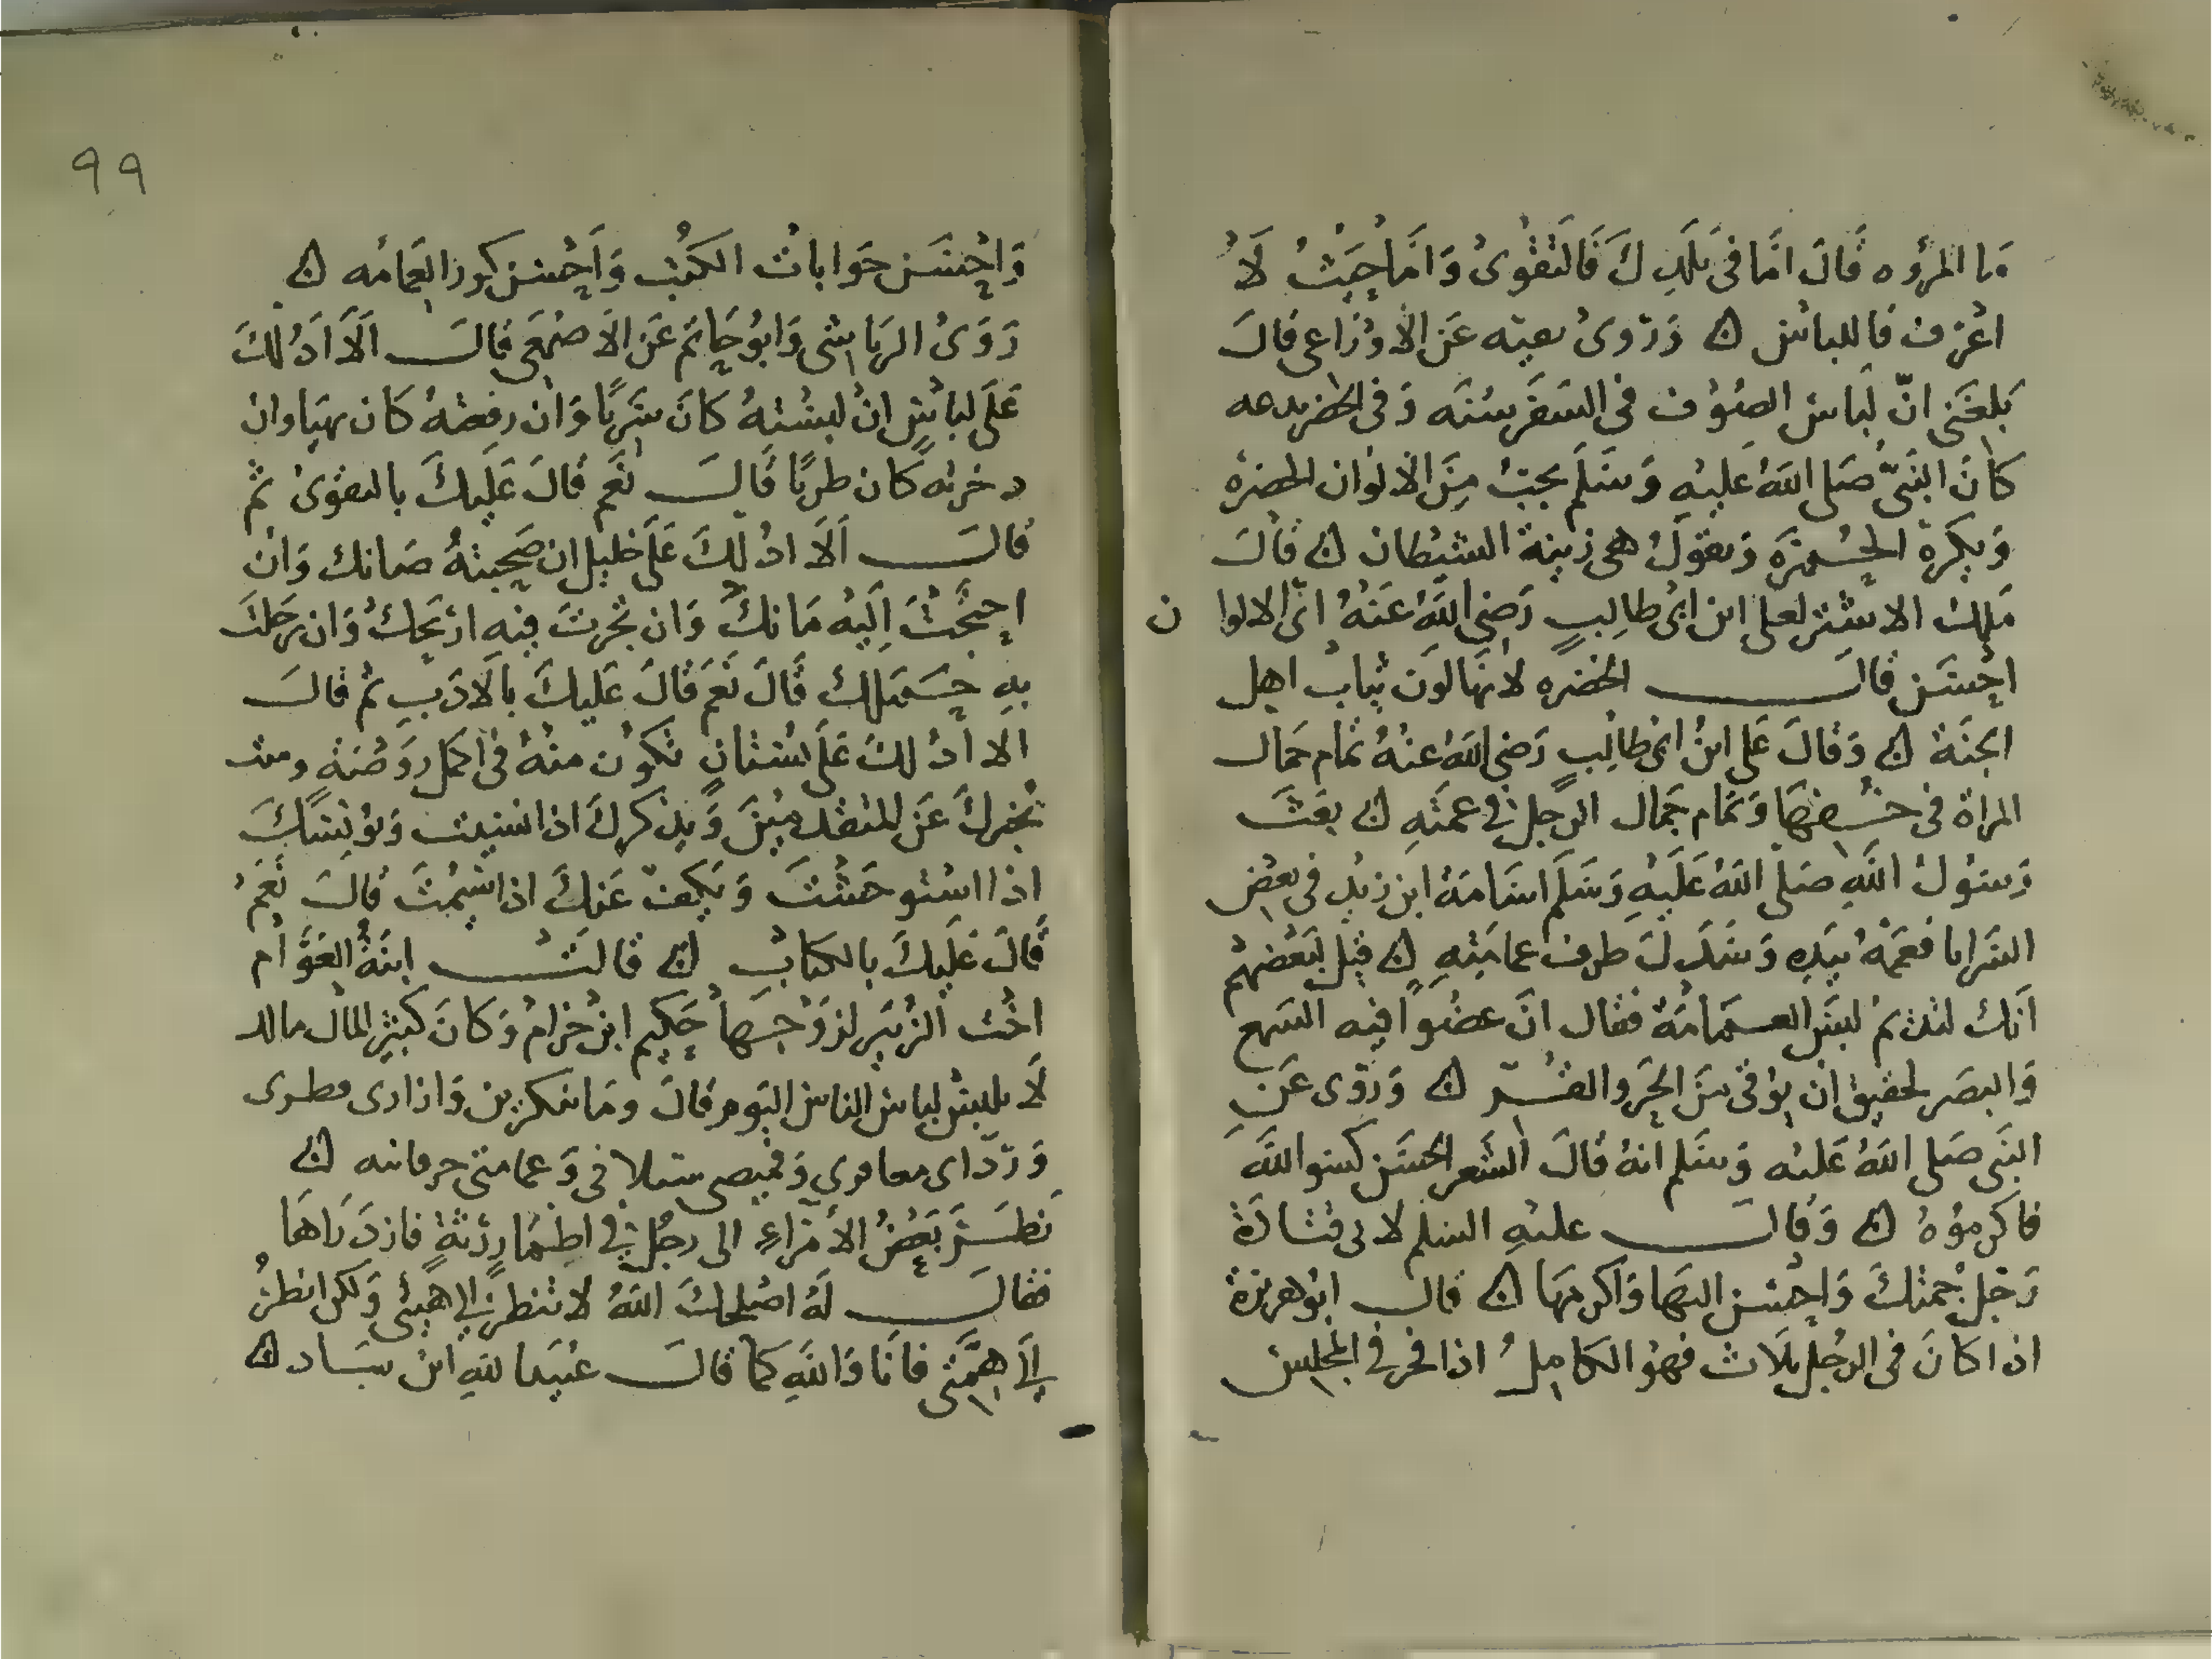 ما المرؤه قَالَ امَّا فى بَلَدِكَ فَالتقْوىُ وَامَّا حَيْثُ لَا
اعْرَف فاللباس ۞ وَرَوىُ بقيه عَن الاوزَاعى قالَ
بَلغَنى انّ لِباس الصوُف فى السَفَر سُنَه وَفى الحضر بدعه
كانَ النبَىّ صَلى اللهُ عَليْهِ وَسَلَم يحبُ مِنَ الالوان الخضرة
وَيكرة الحُمرَة وَيقولُ هى زينة الشيطان ۞ قالَ
مَلِك الاشتر لعلى ابن ابىُ طالِبٍ رَضى اللهُ عَنهُ اىّ الالوا ن
احْسَن قالَ الخضره لانهَا لوَن ثيابُ اهل
الجنَة ۞ وَقالَ عَلى ابنُ ابى طالبٍ رَضى اللهُ عنْهُ تمام جمال
المراة فى خُفهَا وَتمام جمَال الرجل فى عمتَهِ ۞ بعَثَ
رَسوُلُ اللهِ صَلى اللهُ عَلَيْهِ وَسَلَم اسَامَة ابن زيْدِ فى بعْض
السَرايا فعَمَّهُ بيَدِه وَسَدَلَ طرف عمامَتِهِ ۞ قيْل لبَعْضهُم
اَنك لتديمُ لبسَ العمَامَة فقال انّ عضوًا فيه السَمع
وَالبصَر لحقيق انْ يوُقى مِنَ الحَر والقُر ۞ وَروْى عَنِ
النبَى صَلى اللهُ عَليْه وَسَلم انهُ قالَ الشَعر الحسَن كسوالله
فاكرموُهُ ۞ وَقالَ عليْهِ السلم لابى قتادَة
رَجل جُمتكَ وَاحْسن اليهَا وَاكرمهَا ۞ قالَ ابُو هريرَة
اذا كانَ فى الرجُل ثلاث فهوُ الكامِل اذا فخر فى المجلس
٩٩
وَاحْسَن جَوَاباتُ الكتُب وَاَحْسَن كور العمَامه ۞
رَوَىُ الريَاشى وَابوُ حَاتَم عَن الاَصْمَعى قالَ اَلَا ادُلكَ
عَلَى لباسٍ انْ لبسْتهُ كانَ سَريًا وَان رفعتهُ كَان بهيَا وان
دخرته كان طريًا قالَ نعَم قالَ عَلَيكَ بالتقوىُ ثم
قالَ اَلَا ادُلكَ عَلَى خليل ان صَحِبتهُ صَانك وَان
احتجْتَ اِلَيْه مَانكَ وَان تجَرتَ فيهِ ارْبَحكُ وَان رحَلتَ
بهِ حمَلك قالَ نَعَم قالَ عَليكَ بالادَبِ ثم قالَ
الا ادُلكَ عَلَى بُستانٍ تكوُن منْهُ فى اكمل روَضَةٍ وميت
يُخبركَ عَن المتقدمِينَ وَيذكركَ اذا نسيت وَيؤنسَكَ
اذا استوحَشْتَ وَيكف عَنكَ اذا سَئِمتَ قالَ نَعَمُ
قالَ عَلَيكَ بالكتابِ ۞ قالتْ ابنَةُ العَوَّام
اخُت الزبَير لزوْجهَا حَكِيم ابنُ حزامُ وَكانَ كثيْر المالُ مالك
لَا تلبسُ لباس الناسُ اليَوم قالَ ومَا تنكرين وَازارى مطرى
وَرَدَاى معافرى وَقميصى سابرى وَعمامتى حرقانيه ۞
نَظرَ بَعْضُ الامَرَاءِ الى رجُلٍ فى اطمَار رَثةٍ فازدَرَاهَا
فقالَ لهُ اصْلحكَ اللهُ لا تنظر الى هَيْئى وَلكن انظرُ
الىَ هِمّتى فانَا وَاللهِ كمَا قالَ عُبَيد الله ابنُ سيَاد ۞